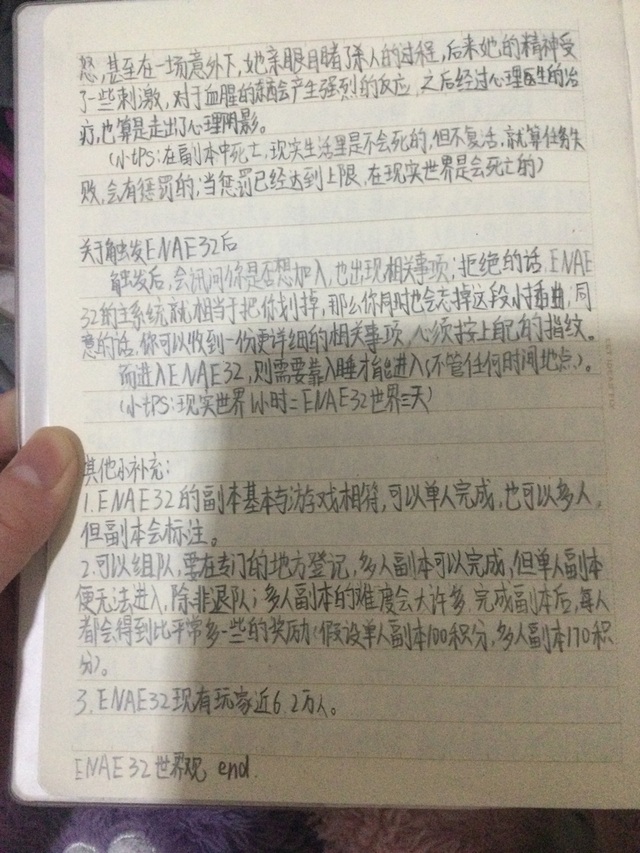 怒,甚至在一场意外下,她亲眼目睹了杀人的过程,后来她的精神受
了一些刺激,对于血腥的东西会产生强烈的反应,之后经过心理医生的治
疗,也算是走出了心理阴影。
(小tps:在副本中死亡,现实生活里是不会死的,但不复活,就算任务失
败,会有惩罚的,当惩罚已经达到上限,在现实世界是会死亡的)
关于触发ENAE32后
触发后,会讯问你是否想加入,也出现相关事项;拒绝的话,ENAE
32的主系统就相当于把你划掉,那么你同时也会忘掉这段小插曲;同
意的话,你可以收到一份更详细的相关事项,必须按上自己的指纹。
而进入ENAE32,则需要靠入睡才能进入(不管任何时间地点)。
(小tps:现实世界1小时=ENAE32世界三天)
其他小补充:
1.ENAE32的副本基本与游戏相符,可以单人完成,也可以多人,
但副本会标注。
2.可以组队,要在专门的地方登记,多人副本可以完成,但单人副本
便无法进入,除非退队;多人副本的难度会大许多,完成副本后,每人
都会得到比平常多一些的奖励(假设单人副本100积分,多人副本170积
分)。
3.ENAE32现有玩家近6.2万人。
ENAE32世界观 end.